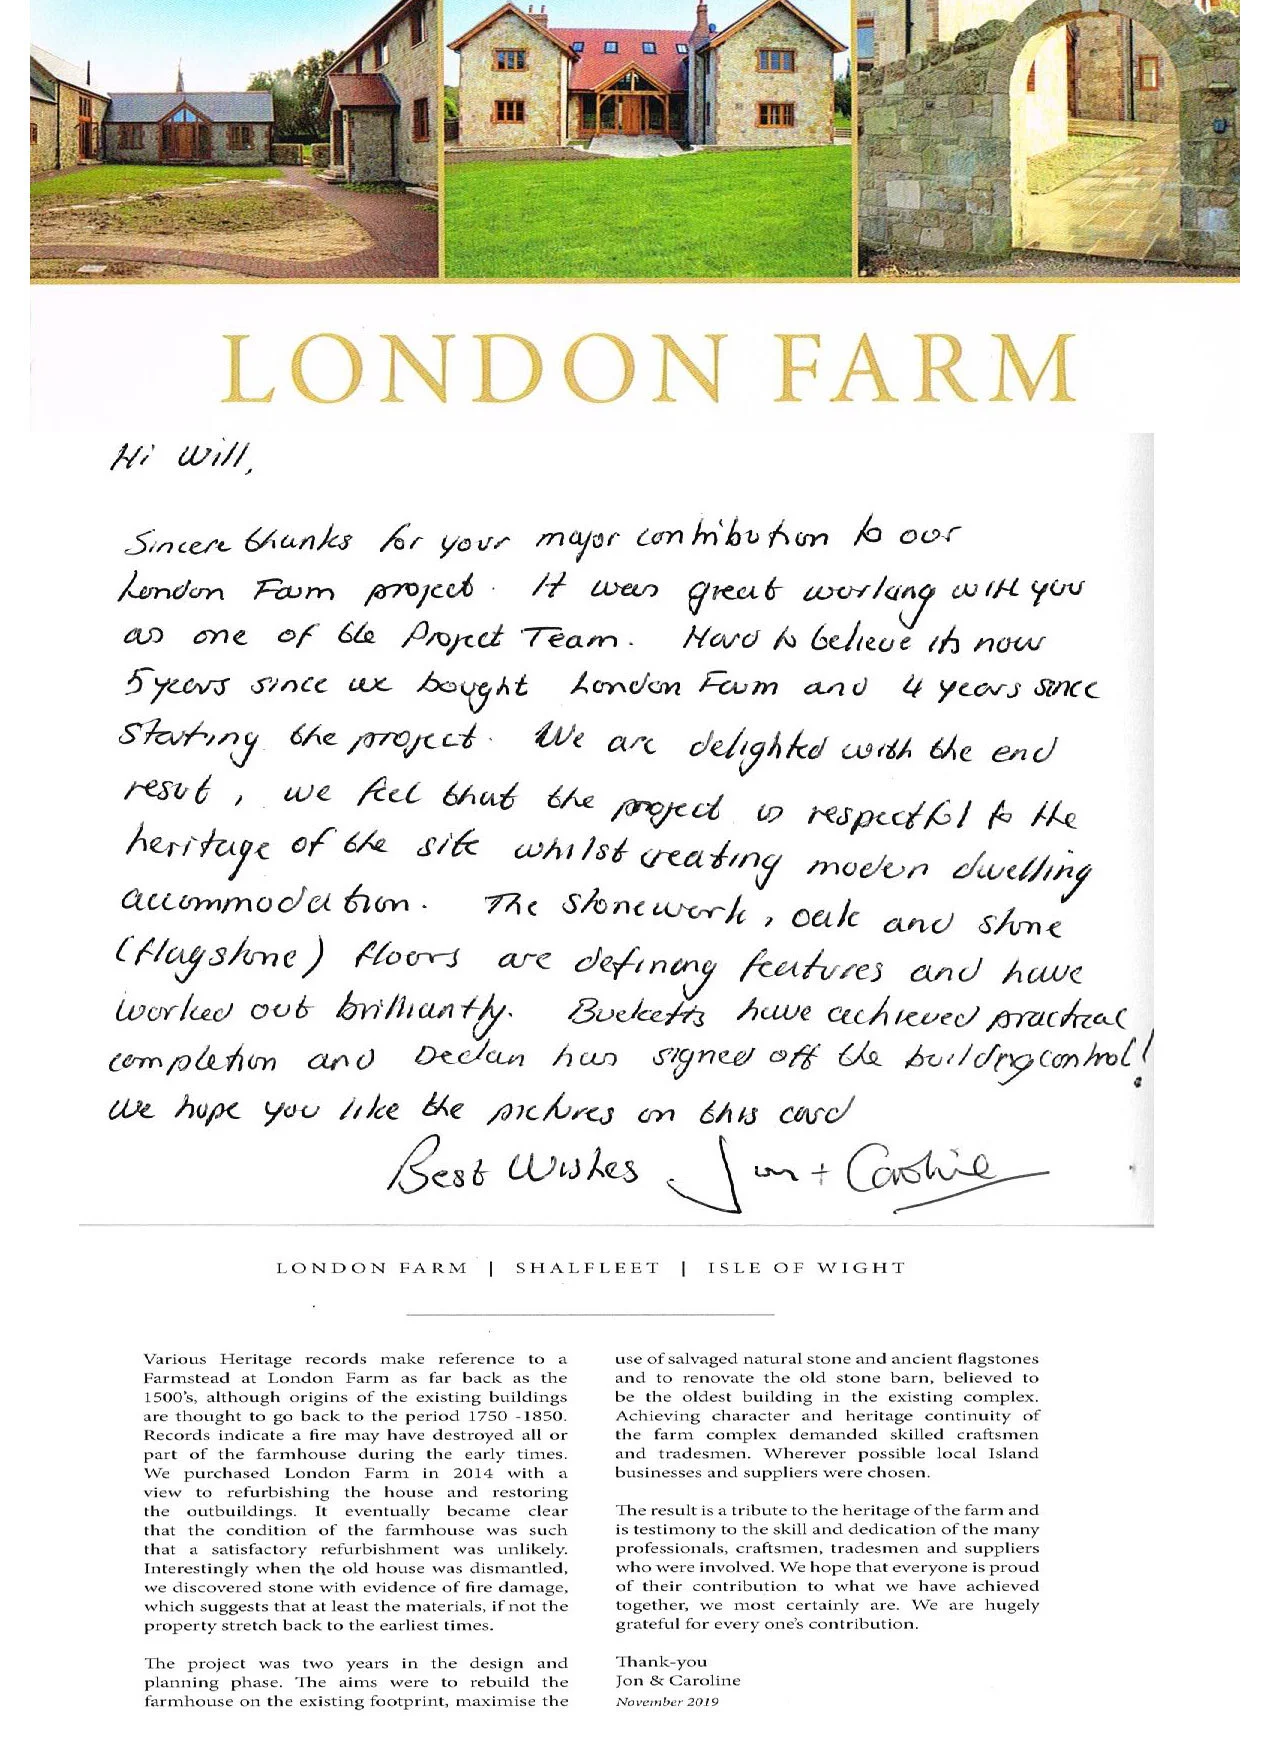 LONDON FARM
Hi Will,
Sincere thanks for your major contribution to our
London Farm project. It was great working with you
as one of the Project Team. Hard to believe its now
5 years since we bought London Farm and 4 years since
starting the project. We are delighted with the end
result, we feel that the project is respectful to the
heritage of the site whilst creating modern dwelling
accommodation. The stonework, oak and stone
(flagstone) floors are defining features and have
worked out brilliantly. Bucketts have achieved practical
completion and Declan has signed off the building control!
We hope you like the pictures on this card
Best Wishes Jon + Caroline
LONDON FARM | SHALFLEET | ISLE OF WIGHT
Various Heritage records make reference to a
Farmstead at London Farm as far back as the
1500's, although origins of the existing buildings
are thought to go back to the period 1750 -1850.
Records indicate a fire may have destroyed all or
part of the farmhouse during the early times.
We purchased London Farm in 2014 with a
view to refurbishing the house and restoring
the outbuildings. It eventually became clear
that the condition of the farmhouse was such
that a satisfactory refurbishment was unlikely.
Interestingly when the old house was dismantled,
we discovered stone with evidence of fire damage,
which suggests that at least the materials, if not the
property stretch back to the earliest times.
The project was two years in the design and
planning phase. The aims were to rebuild the
farmhouse on the existing footprint, maximise the
use of salvaged natural stone and ancient flagstones
and to renovate the old stone barn, believed to
be the oldest building in the existing complex.
Achieving character and heritage continuity of
the farm complex demanded skilled craftsmen
and tradesmen. Wherever possible local Island
businesses and suppliers were chosen.
The result is a tribute to the heritage of the farm and
is testimony to the skill and dedication of the many
professionals, craftsmen, tradesmen and suppliers
who were involved. We hope that everyone is proud
of their contribution to what we have achieved
together, we most certainly are. We are hugely
grateful for every one's contribution.
Thank-you
Jon & Caroline
November 2019